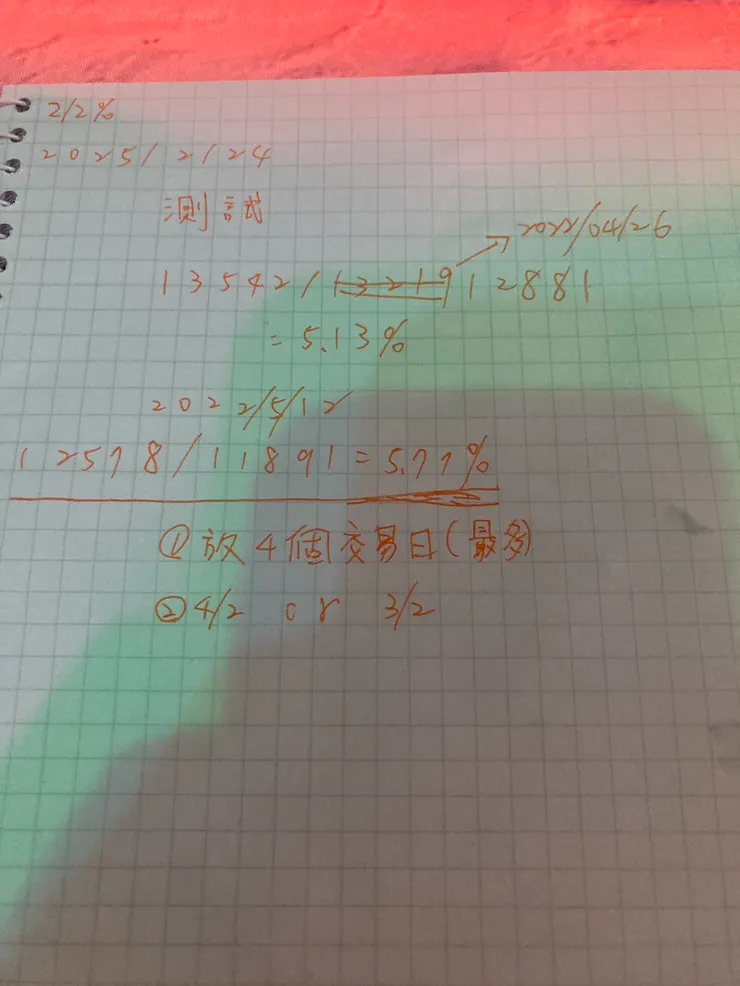 2/2%
2025/2/24
測試
2022/04/26
13542/13219 12881
= 5.13%
2022/5/12
12578/11891=5.77%
①放4個交易日(最多)
②4/2 or 3/2